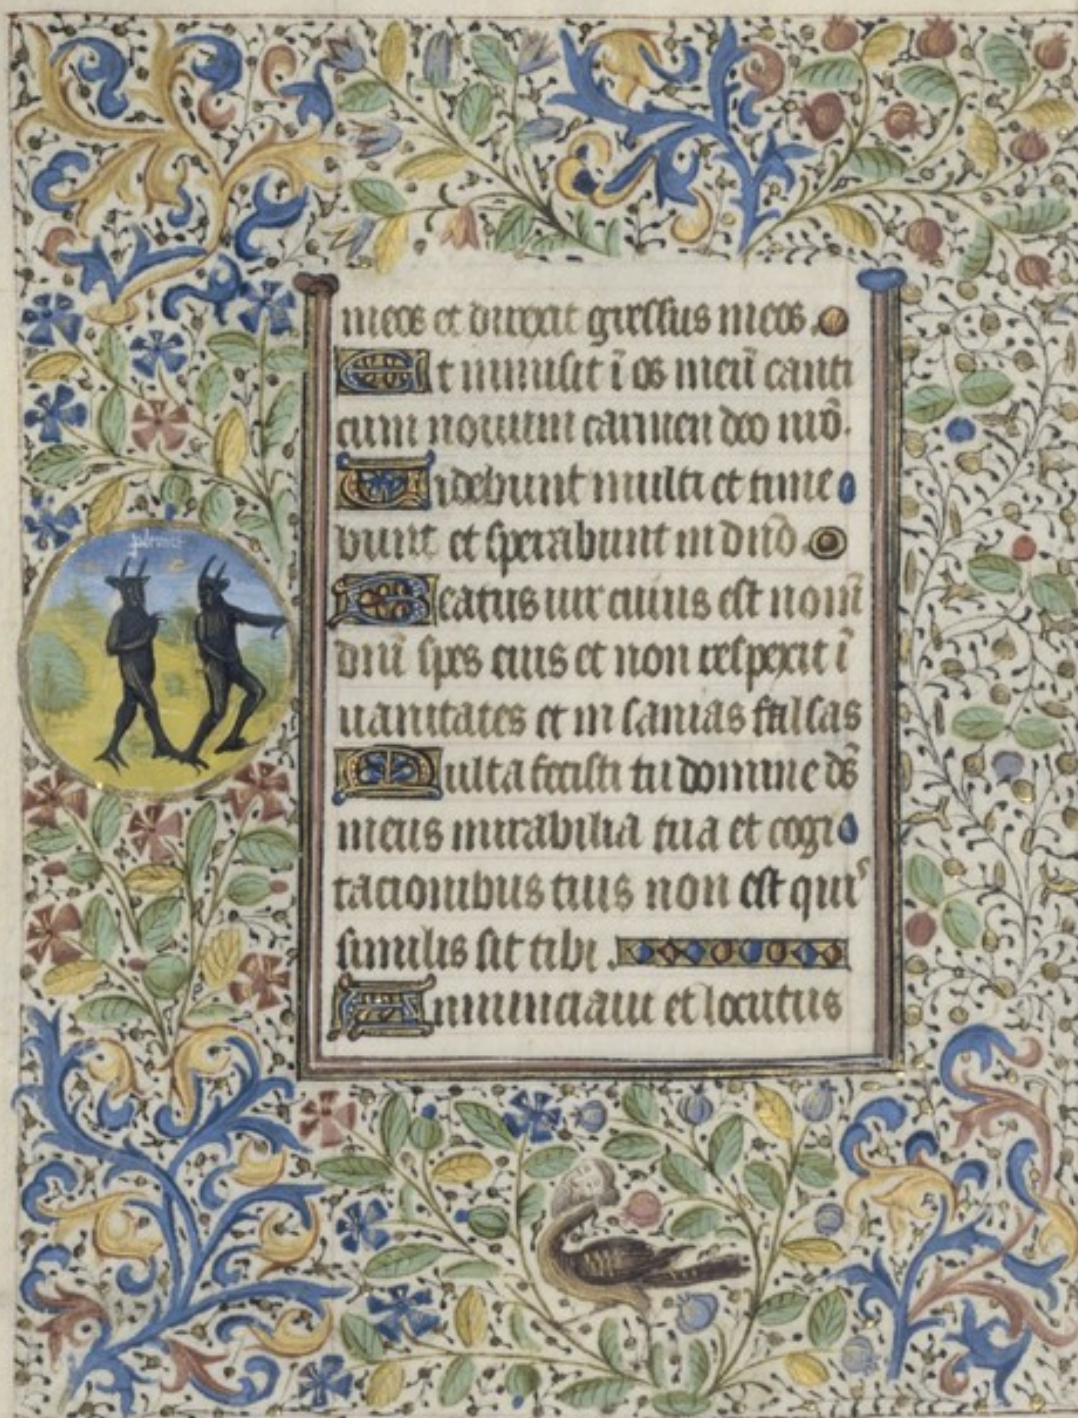 meos et direxit gressus meos.
Et inmisit ī os meū canti
cum novum carmen deo nrō.
Videbunt multi et time
bunt et sperabunt in dnō.
Beatus vir cuius est nom̄
dnī spes eius et non respexit ī
vanitates et in sanias falsas
Multa fecisti tu domine ds̄
meus mirabilia tua et cogi
tacionibus tuis non est qui
similis sit tibi.
Annunciavi et locutus